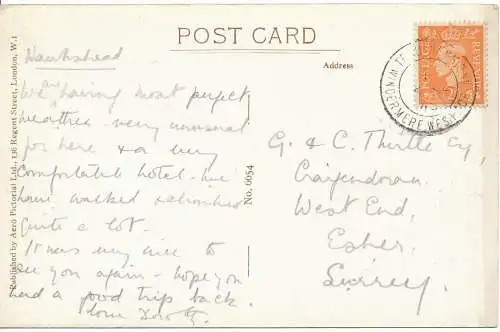 POST CARD
Address
Hawkshead
We are having most perfect
weather - very unusual
for here & a very
comfortable hotel - we
have walked
quite a lot.
It was very nice to
see you again - hope you
had a good trip back.
love Dorothy.
G. & C. Thirtle Esq
Craigendoran,
West End,
Esher,
Surrey.
No. 6054
Published by Aero Pictorial Ltd., 136 Regent Street, London, W.1
POSTAGE
REVENUE
WINDERMERE WEST